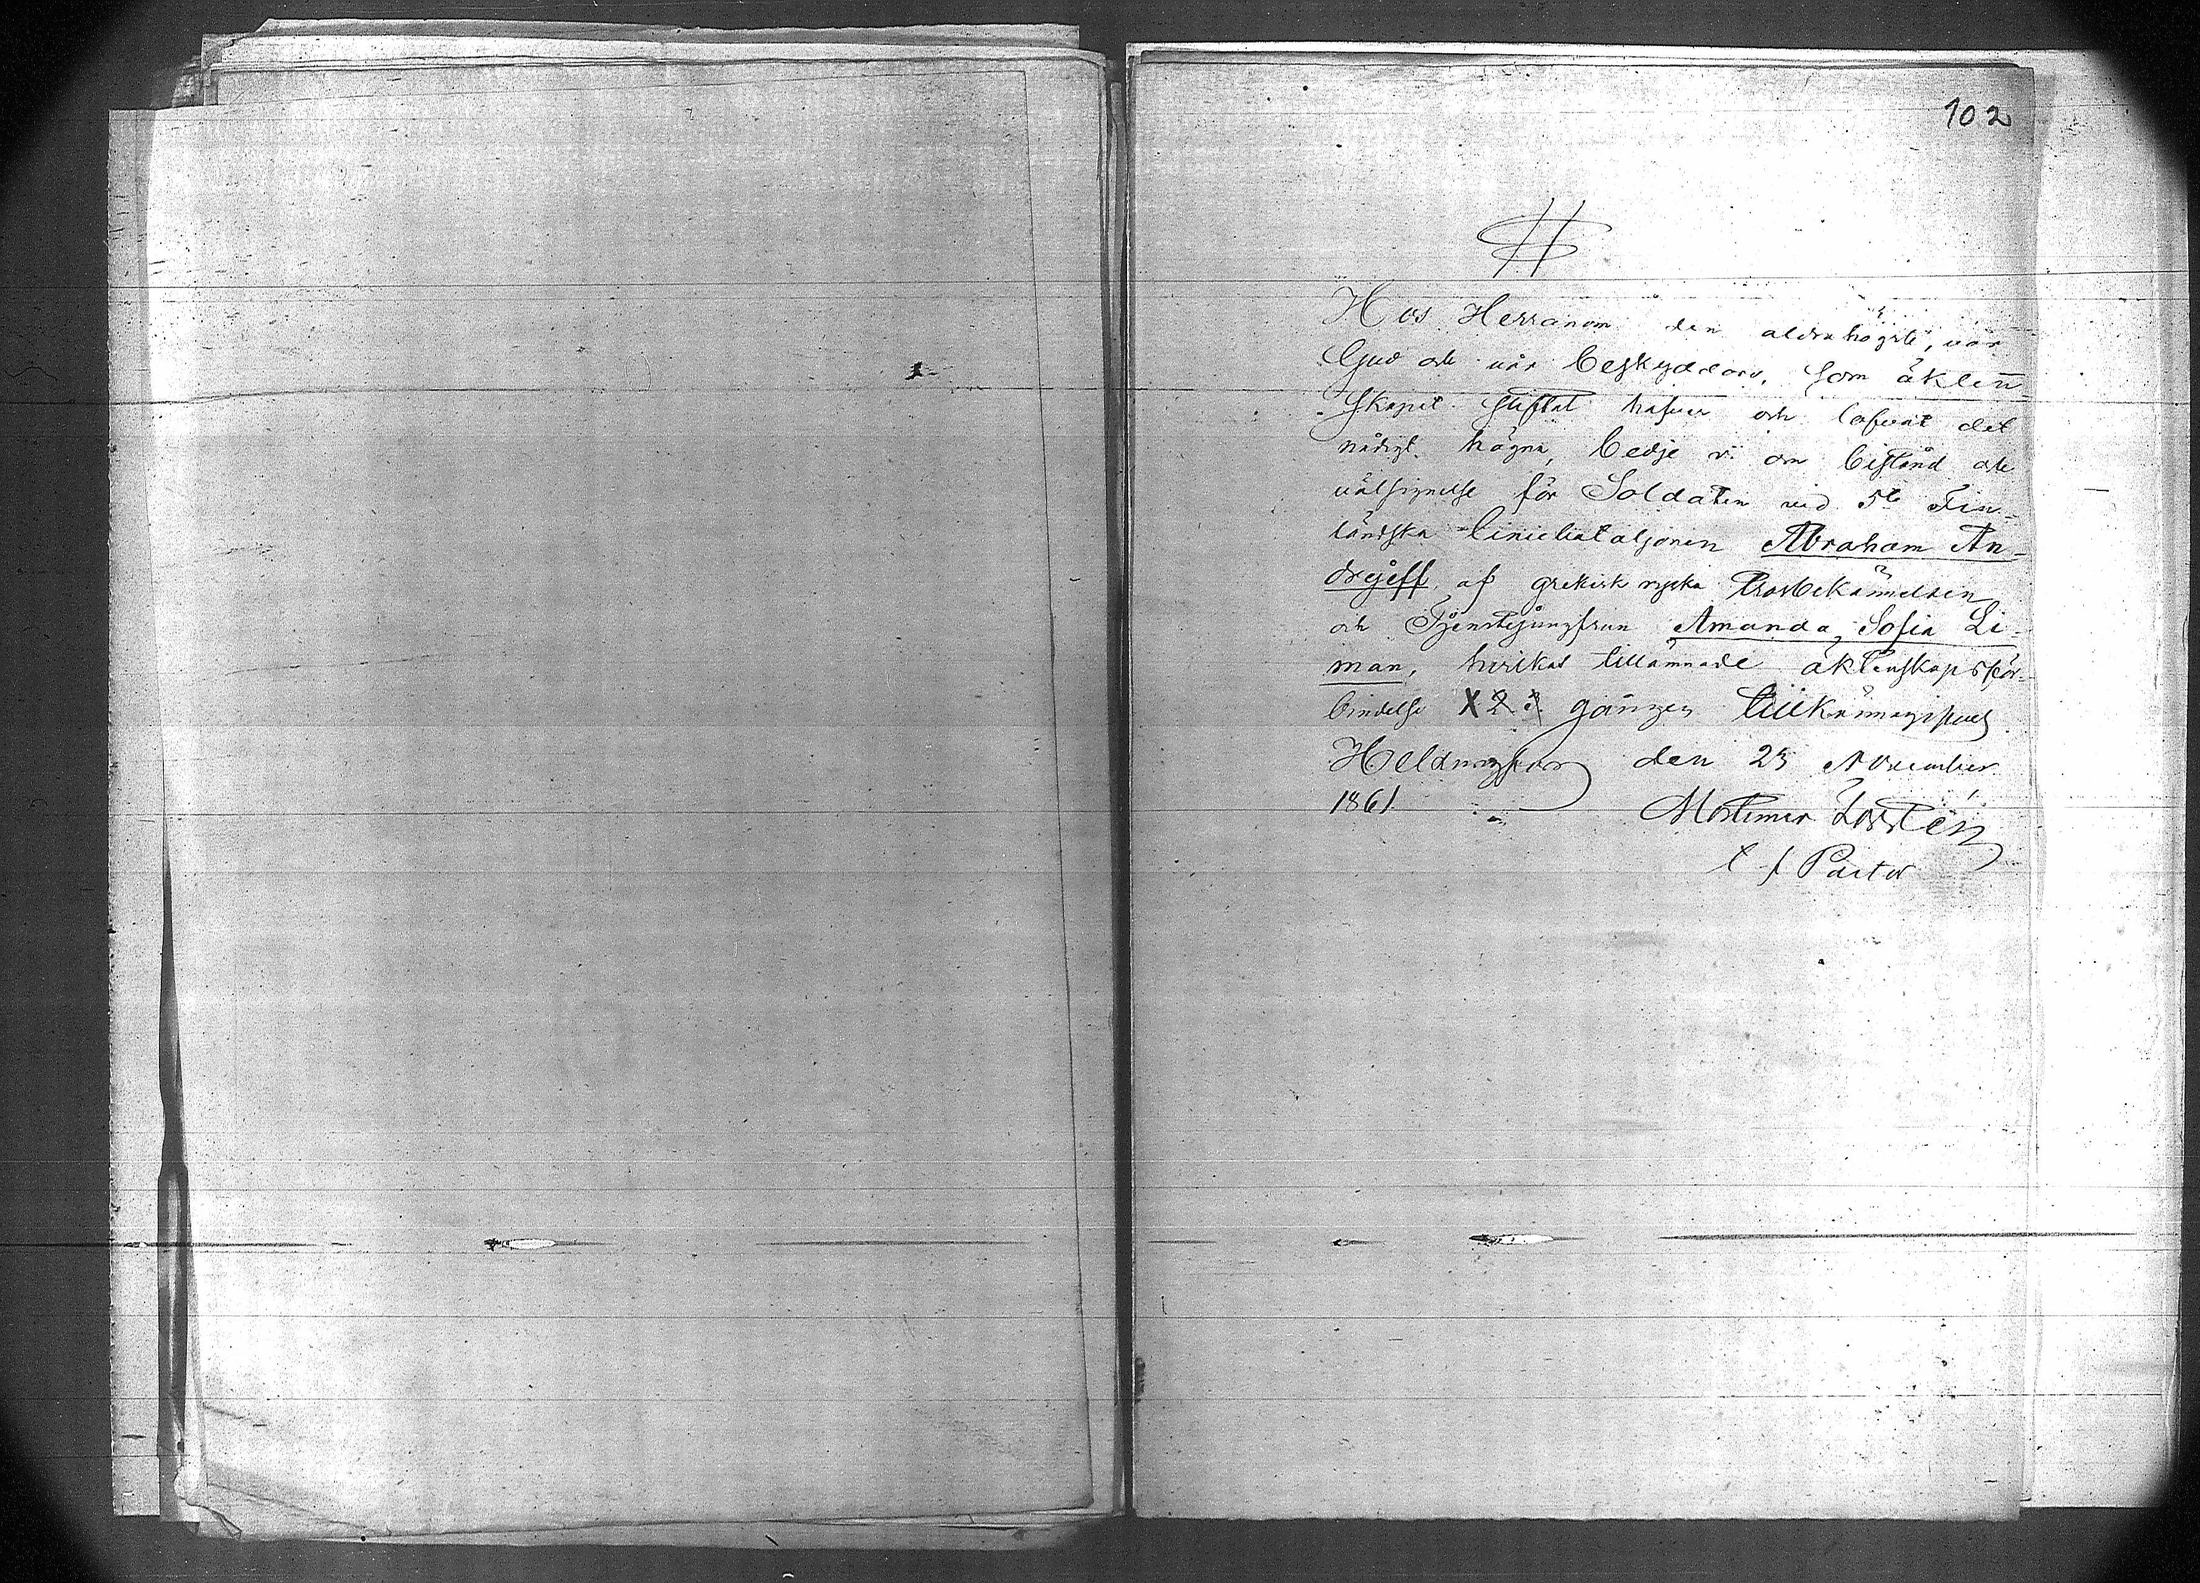 102
Hos Herranom den aldrahögste, vår
Gud och vår beskyddare, som äkten
skapet stiftat hafver och lofvat det
nådigt hägna, bedje vi om bistånd och
välsignelse för Soldaten vid 5te Fin-
ländska Liniebataljonen Abraham An-
drejeff af grekisk ryska trosbekännelsen
och Tjenstejungfrun Amanda Sofia Li-
man, hvilkas tillämnade äktenskapsför-
bindelse X 2. 3. gången tillkännagifves
Helsingfors den 25 November
1861.
Mortimer
t f Pastor